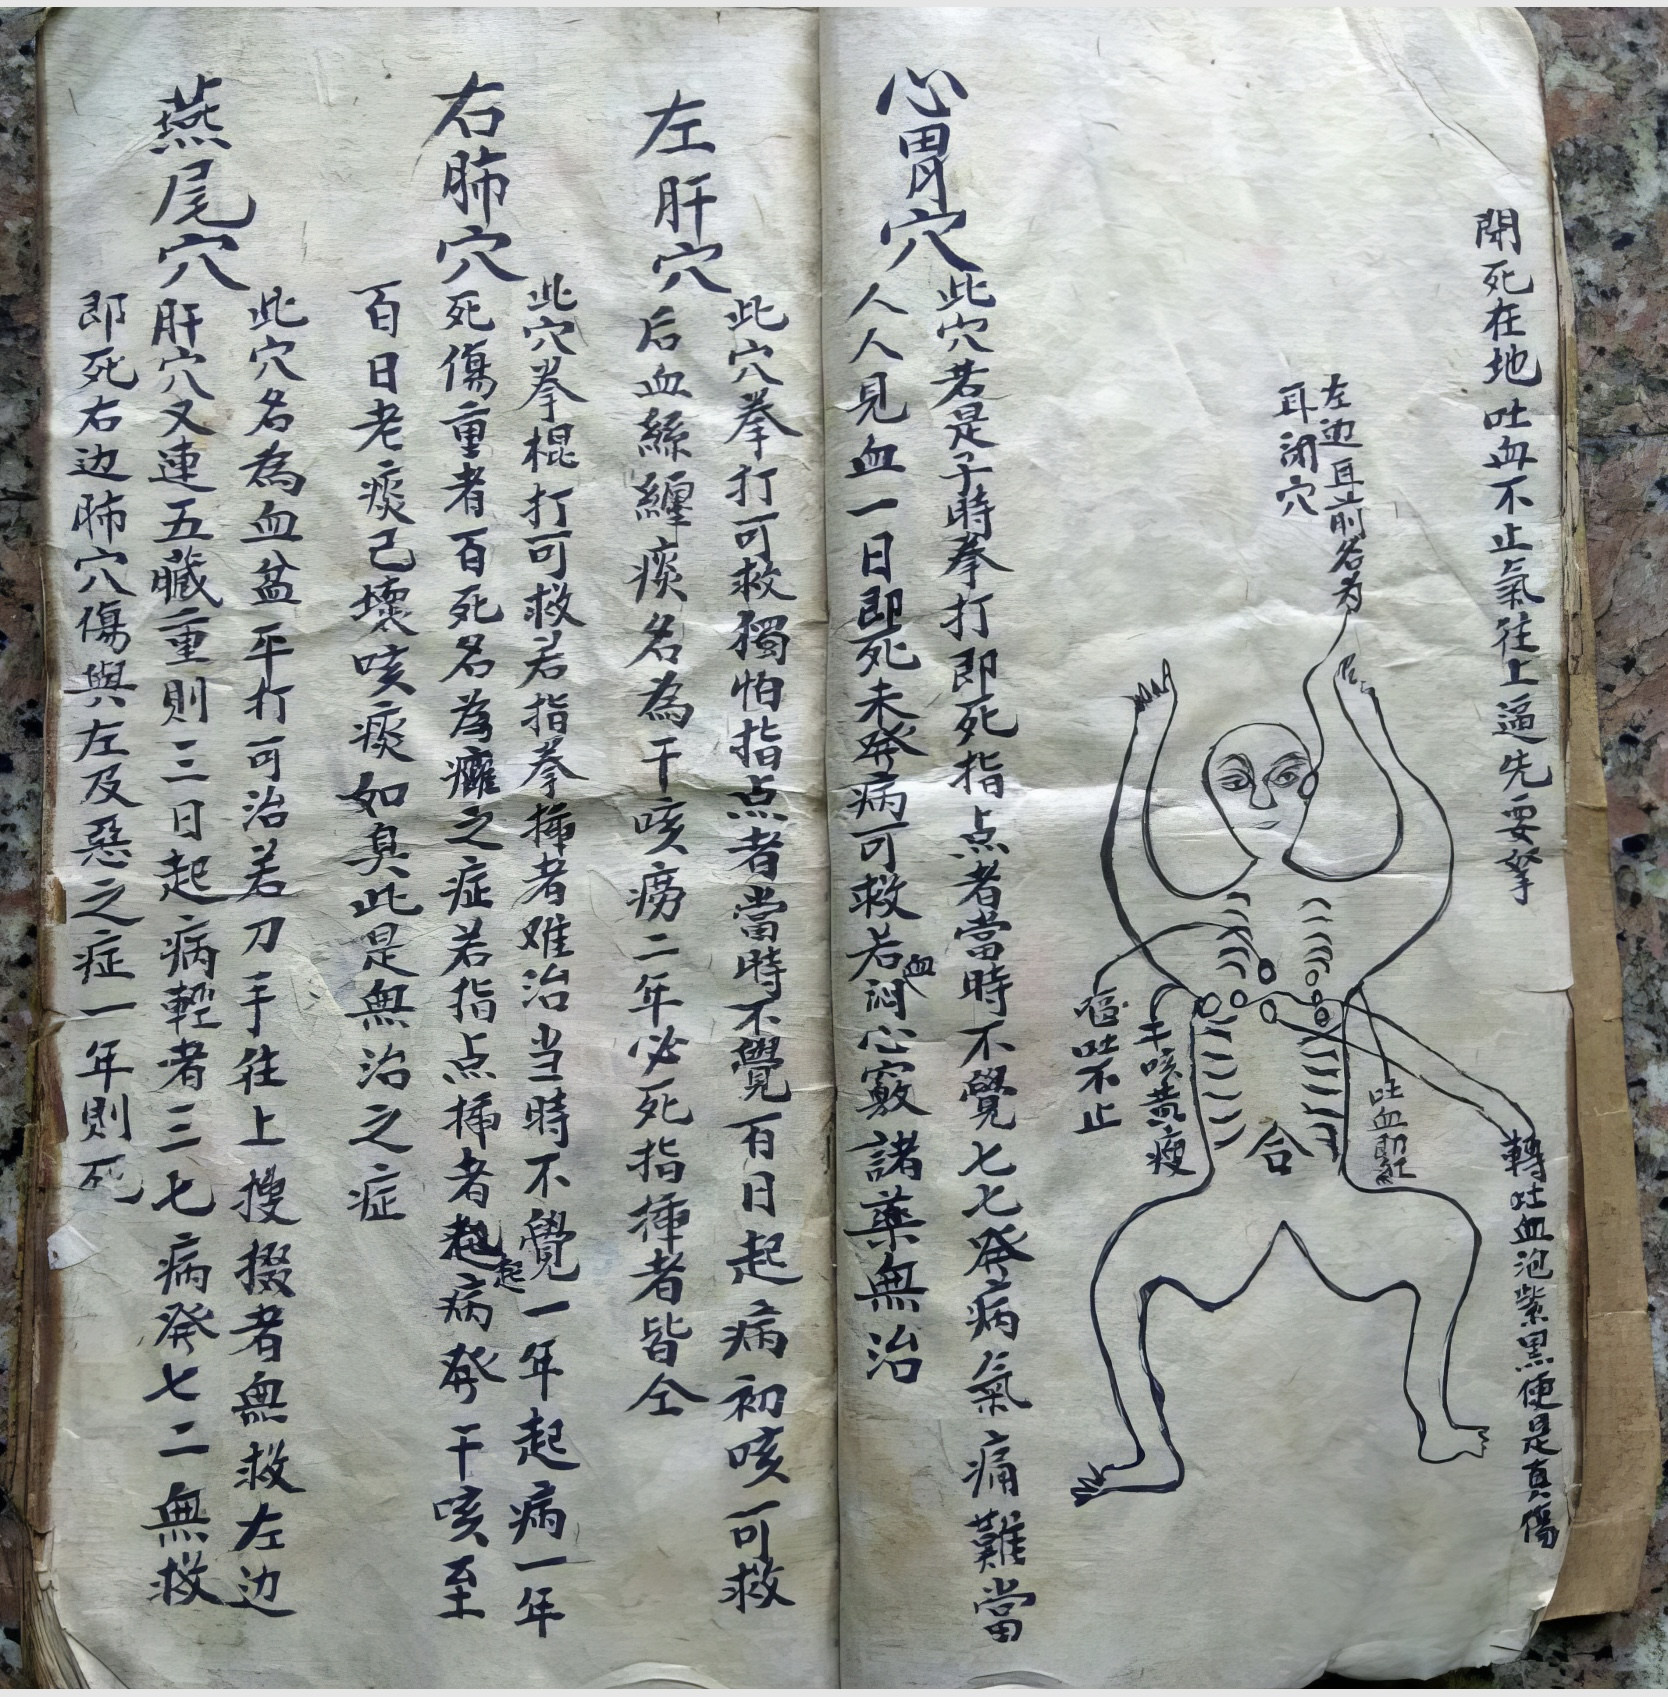 開死在地吐血不止氣往上逼先要拏
左边耳前名为
耳闭穴
嘔吐不止
干咳黄瘦
合
吐血即紅
轉吐血泡紫黑便是真傷
心胃穴
此穴若是子時拳打即死指点者當時不覺七七發病氣痛難當
人人見血一日即死未發病可救若血悶心竅諸藥無治
左肝穴
此穴拳打可救獨怕指点者當時不覺百日起病初咳可救
后血絲纏痰名為干咳癆二年必死指挿者皆仝
右肺穴
此穴拳棍打可救若指拳挿者难治当時不覺一年起病一年
死傷重者百死名為癰之症若指点挿者起病發干咳至
百日老痰己壞咳痰如臭此是無治之症
燕尾穴
此穴名為血盆平打可治若刀手往上搜掇者無救左边
肝穴又連五臓重則三日起病輕者三七病發七二無救
即死右边肺穴傷與左及惡之症一年則死